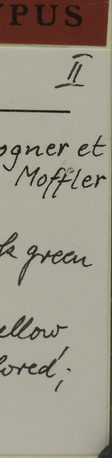 YPUS
II
ogner et
Moffler
k green
ellow,
ored;